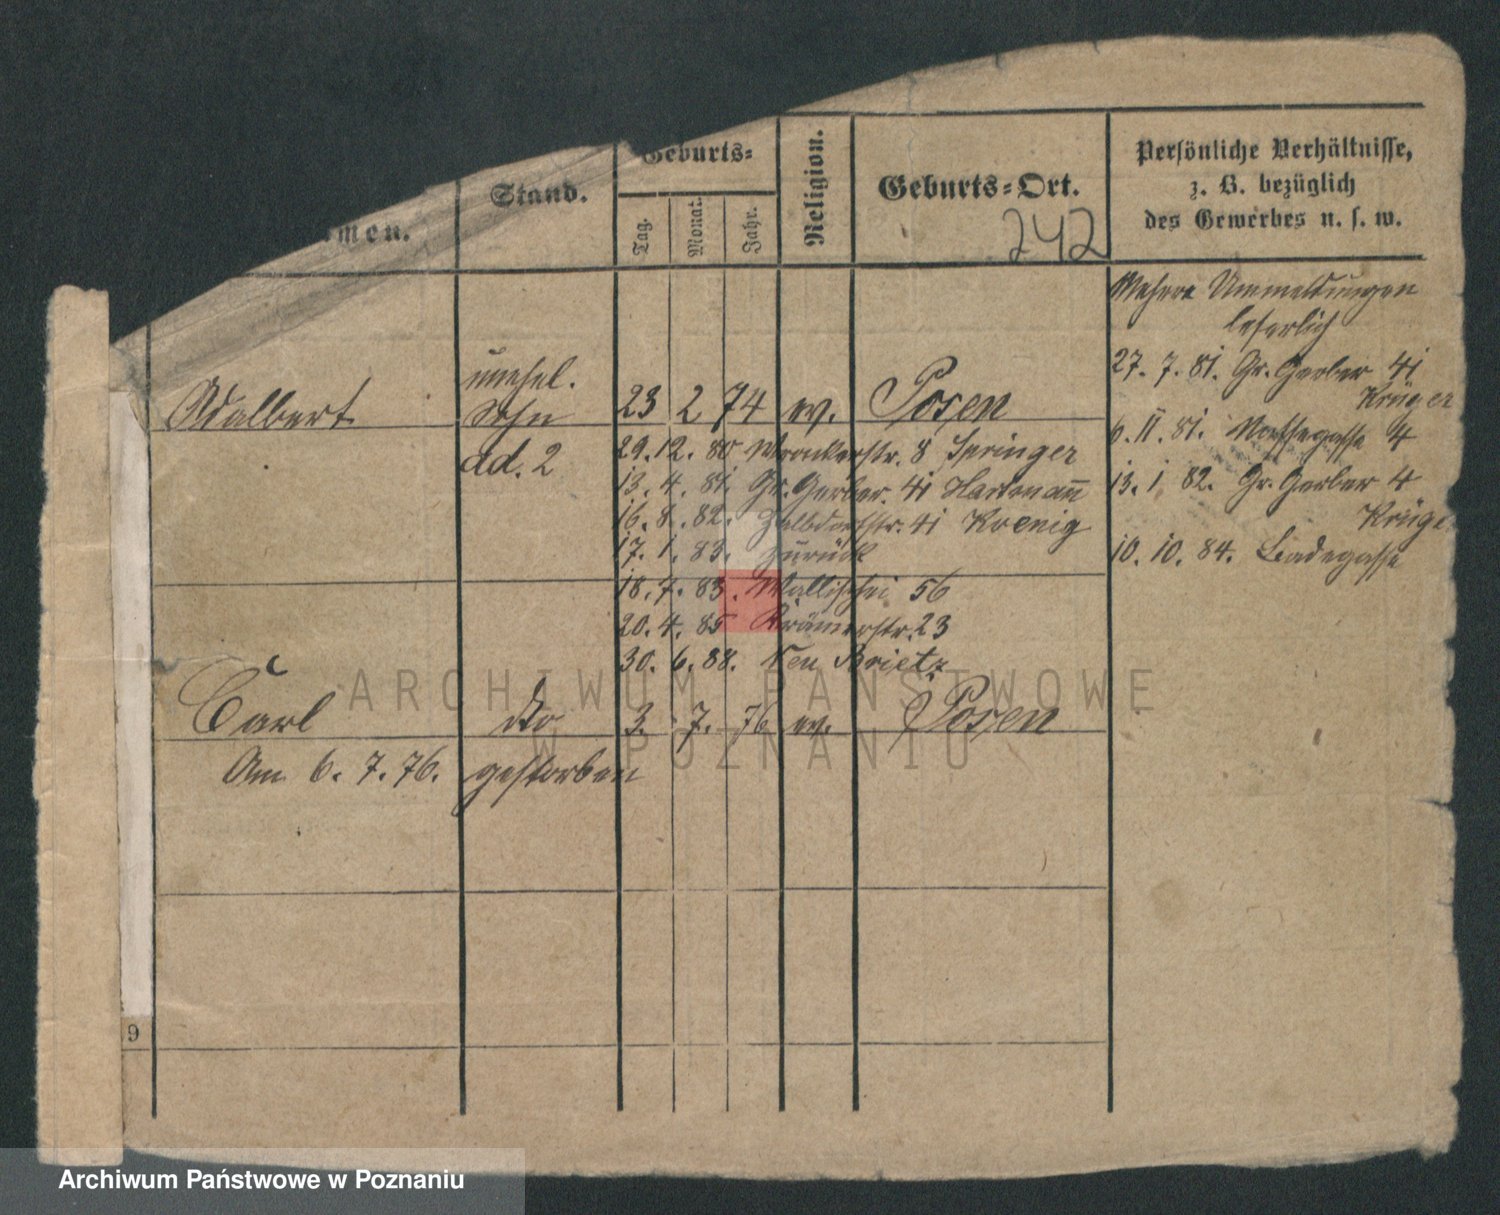 men.
Stand.
Geburts=
Tag.
Monat.
Jahr.
Religion.
Geburts=Ort.
242
Persönliche Verhältnisse,
z. B. bezüglich
des Gewerbes u. s. w.
Mehrere Ummeldungen
leserlich
27. 7. 81. Gr. Gerber 41
Krüger
Adalbert unehel. Sohn 23 2 74 ev. Posen
ad. 2
6. II. 81. Nassegasse 4
29. 12. 80 Wronkerstr. 8 Springer
13. 4. 81. Gr. Gerber. 41 Hartmann
13. 1. 82. Gr. Gerber 4
Krüge
16. 8. 82. Halbdorfstr. 41 Koenig
17. 1. 83. zurück
10. 10. 84. Badegasse
18. 7. 83. Wallischei 56
20. 4. 85 Krämerstr. 23
30. 6. 88. Neu Brietz
ARCHIWUM PAŃSTWOWE
W POZNANIU
Carl dto 3. 7. 76 ev. Posen
Am 6. 7. 76. gestorben
9
Archiwum Państwowe w Poznaniu